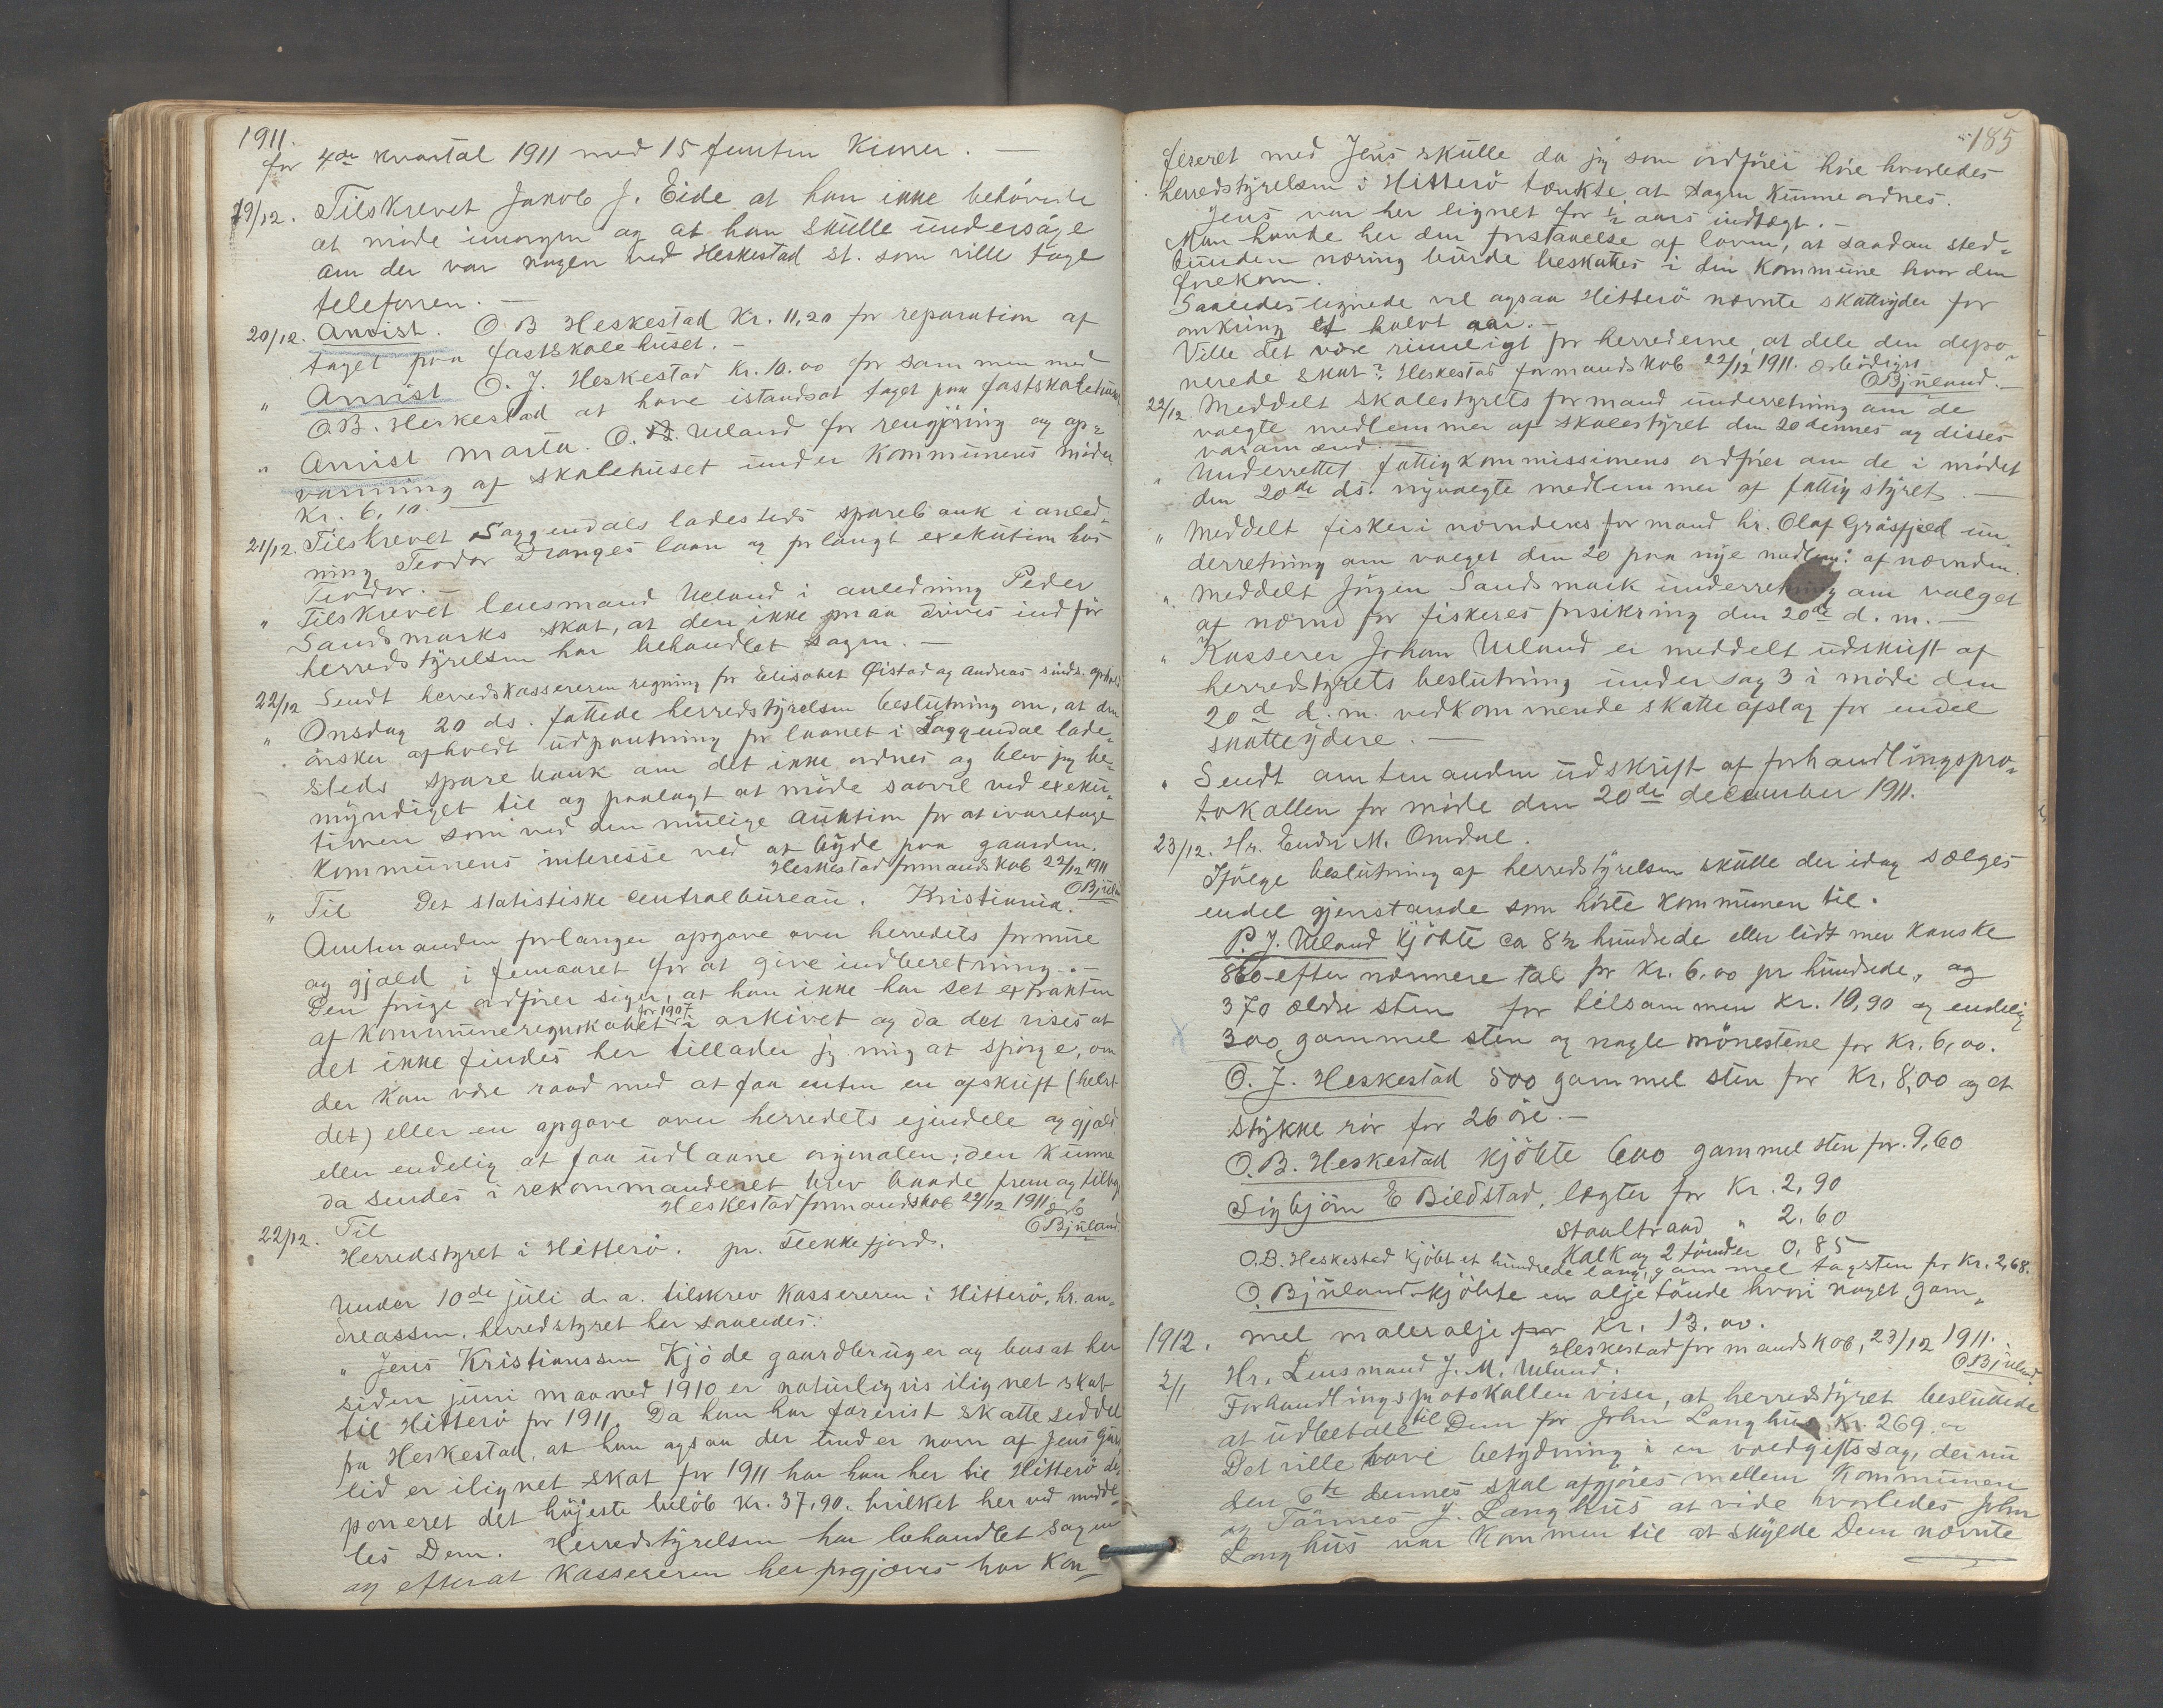 1911.
for 4de kvartal 1911 med 15 femten Kroner. —
19/12. Tilskrevet Jakob J. Eide at han ikke behövede
at möde imorgen og at han skulle undersöge
om der var nogen ved Heskestad st. som ville tage
telefonen. —
20/12. Anvist. O. B Heskestad Kr. 11,20 for reparation af
taget paa fastskolehuset. —
" Anvist O. J. Heskestad Kr. 10.00 for sammen med
O.B. Heskestad at have istandsat taget paa fastskolehuset
" Anvist Marta O. B. Ueland for rengjöring og op-
varming af skolehuset under Kommunens möder
Kr. 6,10. —
21/12. Tilskrevet Soggendals ladesteds sparebank i anled-
ning Teodor Dranges laan og forlangt exekution hos
Teodor. —
" Tilskrevet lensmand Ueland i anledning Peder
Sandsmarks skat, at den ikke maa drives ind för
herredstyrelsen har behandlet sagen. —
22/12 Sendt herredskassereren regning for Elisabet Öistad og Andreas sinds.
" Onsdag 20 ds. fattede herredstyrelsen beslutning om, at den
önsker afholdt udpantning for laanet i Soggendal lade-
steds sparebank om det ikke ordnes og blev jeg be-
myndiget til og paalagt at möde saavel ved exeku-
tionen som ved den mulige auktion for at ivaretage
Kommunens interesse ved at byde paa gaarden.
Heskestad formandskob 22/12 1911
OBjüland
" Til Det statistiske centralbureau. Kristiania.
Amtmanden forlanger opgave over herredets formue
og gjæld i femaaret for at give indberetning. —
Den forige ordförer siger, at han ikke har set extrakten
af Kommuneregnskabet for 1907 i arkivet og da det vises at
det ikke findes her tillader jeg mig at spörge, om
der kan være raad med at faa enten en afskrift (helst
det) eller en opgave over herredets ejendele og gjæld
eller endelig at faa udlaane orginalen; den kunne
da sendes i rekommanderet brev baade frem og tilbage
Heskestad formandskob 22/12 1911 ærb
OBjüland
22/12. Til
Herredstyret i Hitterö. pr. Flekkefjord.
Under 10de juli d.a. tilskrev Kassereren i Hitterö, hr. an-
dreassen, herredstyret her saaledes:
" Jens Kristianssen Kjöde gaardbruger og bosat her
siden juni maaned 1910 er naturligvis ilignet skat
til Hitterö for 1911. Da han har forevist skatteseddel
fra Heskestad, at han ogsaa der under navn af Jens Gaus-
lid er ilignet skat for 1911 har han her til Hitterö de-
poneret det höjeste belöb Kr. 37,90. hvilket her ved medde-
les Dem. Herredstyrelsen har behandlet sagen
og efterat Kassereren her forgjæves har Kon-
185
fereret med Jens skulle da jeg som ordförer höre hvorledes
herredstyrelsen i Hitterö tænkte at sagen kunne ordnes.
Jens var her lignet for 1/2 aars indtægt. —
Man havde her den forstaaelse af loven, at saadan sted-
bunden næring burde beskattes i den kommune hvor den
forekom.
Saaledes lignede vel ogsaa Hitterö nævnte skatteyder for
omkring et halvt aar. —
Ville det være rimeligt for herrederne at dele den depo-
nerede skat? Heskestad formandskob 22/12 1911. ærbödigst
OBjüland. —
22/12 Meddelt skolestyrets formand underretning om de
valgte medlemmer af skolestyret den 20 dennes og disses
varamænd. —
" Underrettet fattigkommissionens ordförer om de i mödet
den 20de ds. nyvalgte medlemmer af fattigstyret. —
" Meddelt fiskerinævndens formand hr. Olaf Gräsfjeld un-
derretning om valget den 20 paa nye medlem: af nævnden.
" Meddelt Jörgen Sandsmark underretning om valget
af nævnd for fiskeres forsikring den 20de d. m. —
" Kasserer Johan Ueland er meddelt udskrift af
herredstyrets beslutning under sag 3 i möde den
20d d. m. vedkommende skatteafslag for endel
skatteydere. —
" Sendt amtmanden udskrift af forhandlingspro-
tokollen for möde den 20de december 1911.
23/12. Hr. Endre M. Omdal.
Ifölge beslutning af herredstyrelsen skulle der idag sælges
endel gjenstande som hörte kommunen til.
P. J. Ueland kjöbte ca 8 1/2 hundrede eller lidt mer kanske
860 efter nærmere tal for Kr. 6.00 pr hundrede, og
370 ældre sten for tilsammen Kr. 10,90 og endelig
x 300 gammel sten og nogle mönestene for Kr. 6,00.
O. J. Heskestad 500 gammel sten for Kr. 8,00 og et
stykke rör for 26 öre. —
O. B. Heskestad kjöbte 600 gammel sten for. 9,60
Sigbjörn E Bilstad, lægter for Kr. 2,90
staaltraad " 2.60
Kalk og 2 tönder 0,85
O.B. Heskestad kjöbt et hundrede lang, gammel tagsten for Kr. 2,68.
O. Bjüland kjöbte en oljetönde hvori noget gam-
mel malerolje for Kr. 13.00.
Heskestad formandskob, 23/12 1911.
OBjüland
1912.
2/1 Hr. Lensmand J. M. Ueland.
Forhandlingsprotokollen viser, at herredstyret besluttede
at udbetale til Dem for John Langhus Kr. 269.00
Det ville have betydning i en voldgiftssag, der nu
den 6te dennes skal afgjöres mellem Kommunen
og Tönnes J. Langhus at vide hvorledes John
Langhus var kommen til at skylde Dem nævnte